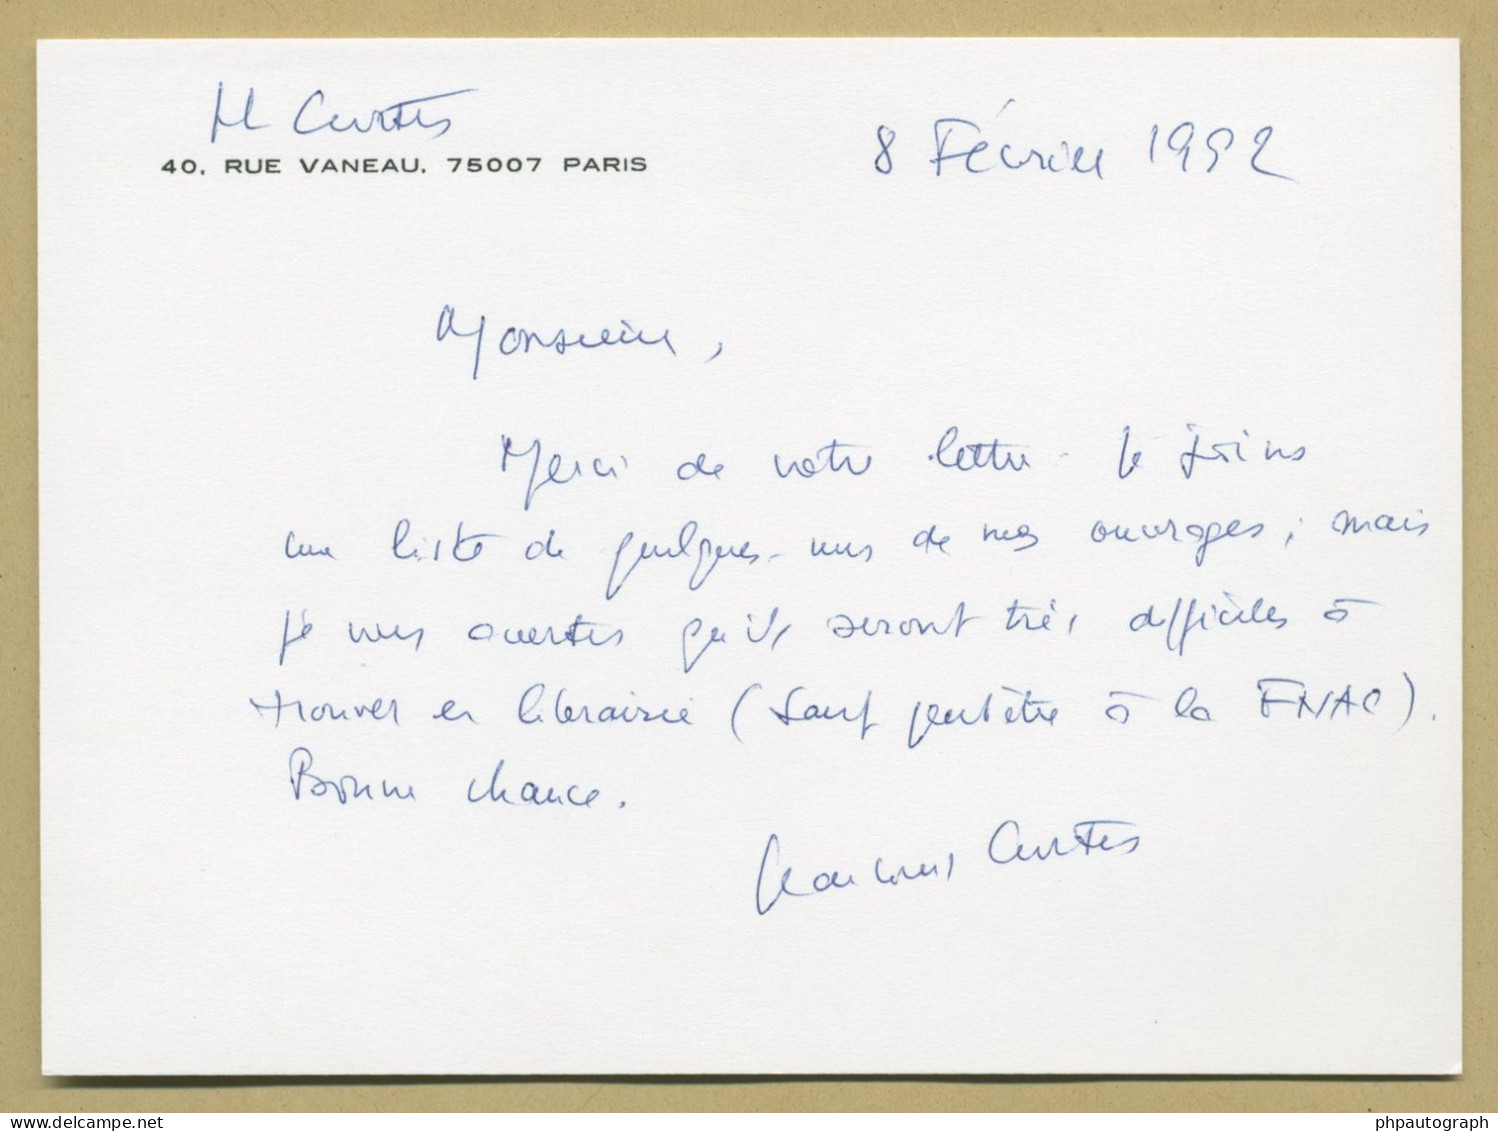 JL Curtis
40, RUE VANEAU, 75007 PARIS
8 Février 1992
Monsieur,
Merci de votre lettre. Je joins
une liste de quelques-uns de mes ouvrages ; mais
je vous avertis qu'ils seront très difficiles à
trouver en librairie (sauf peut être à la FNAC).
Bonne chance.
Jean Louis Curtis
phpautograph